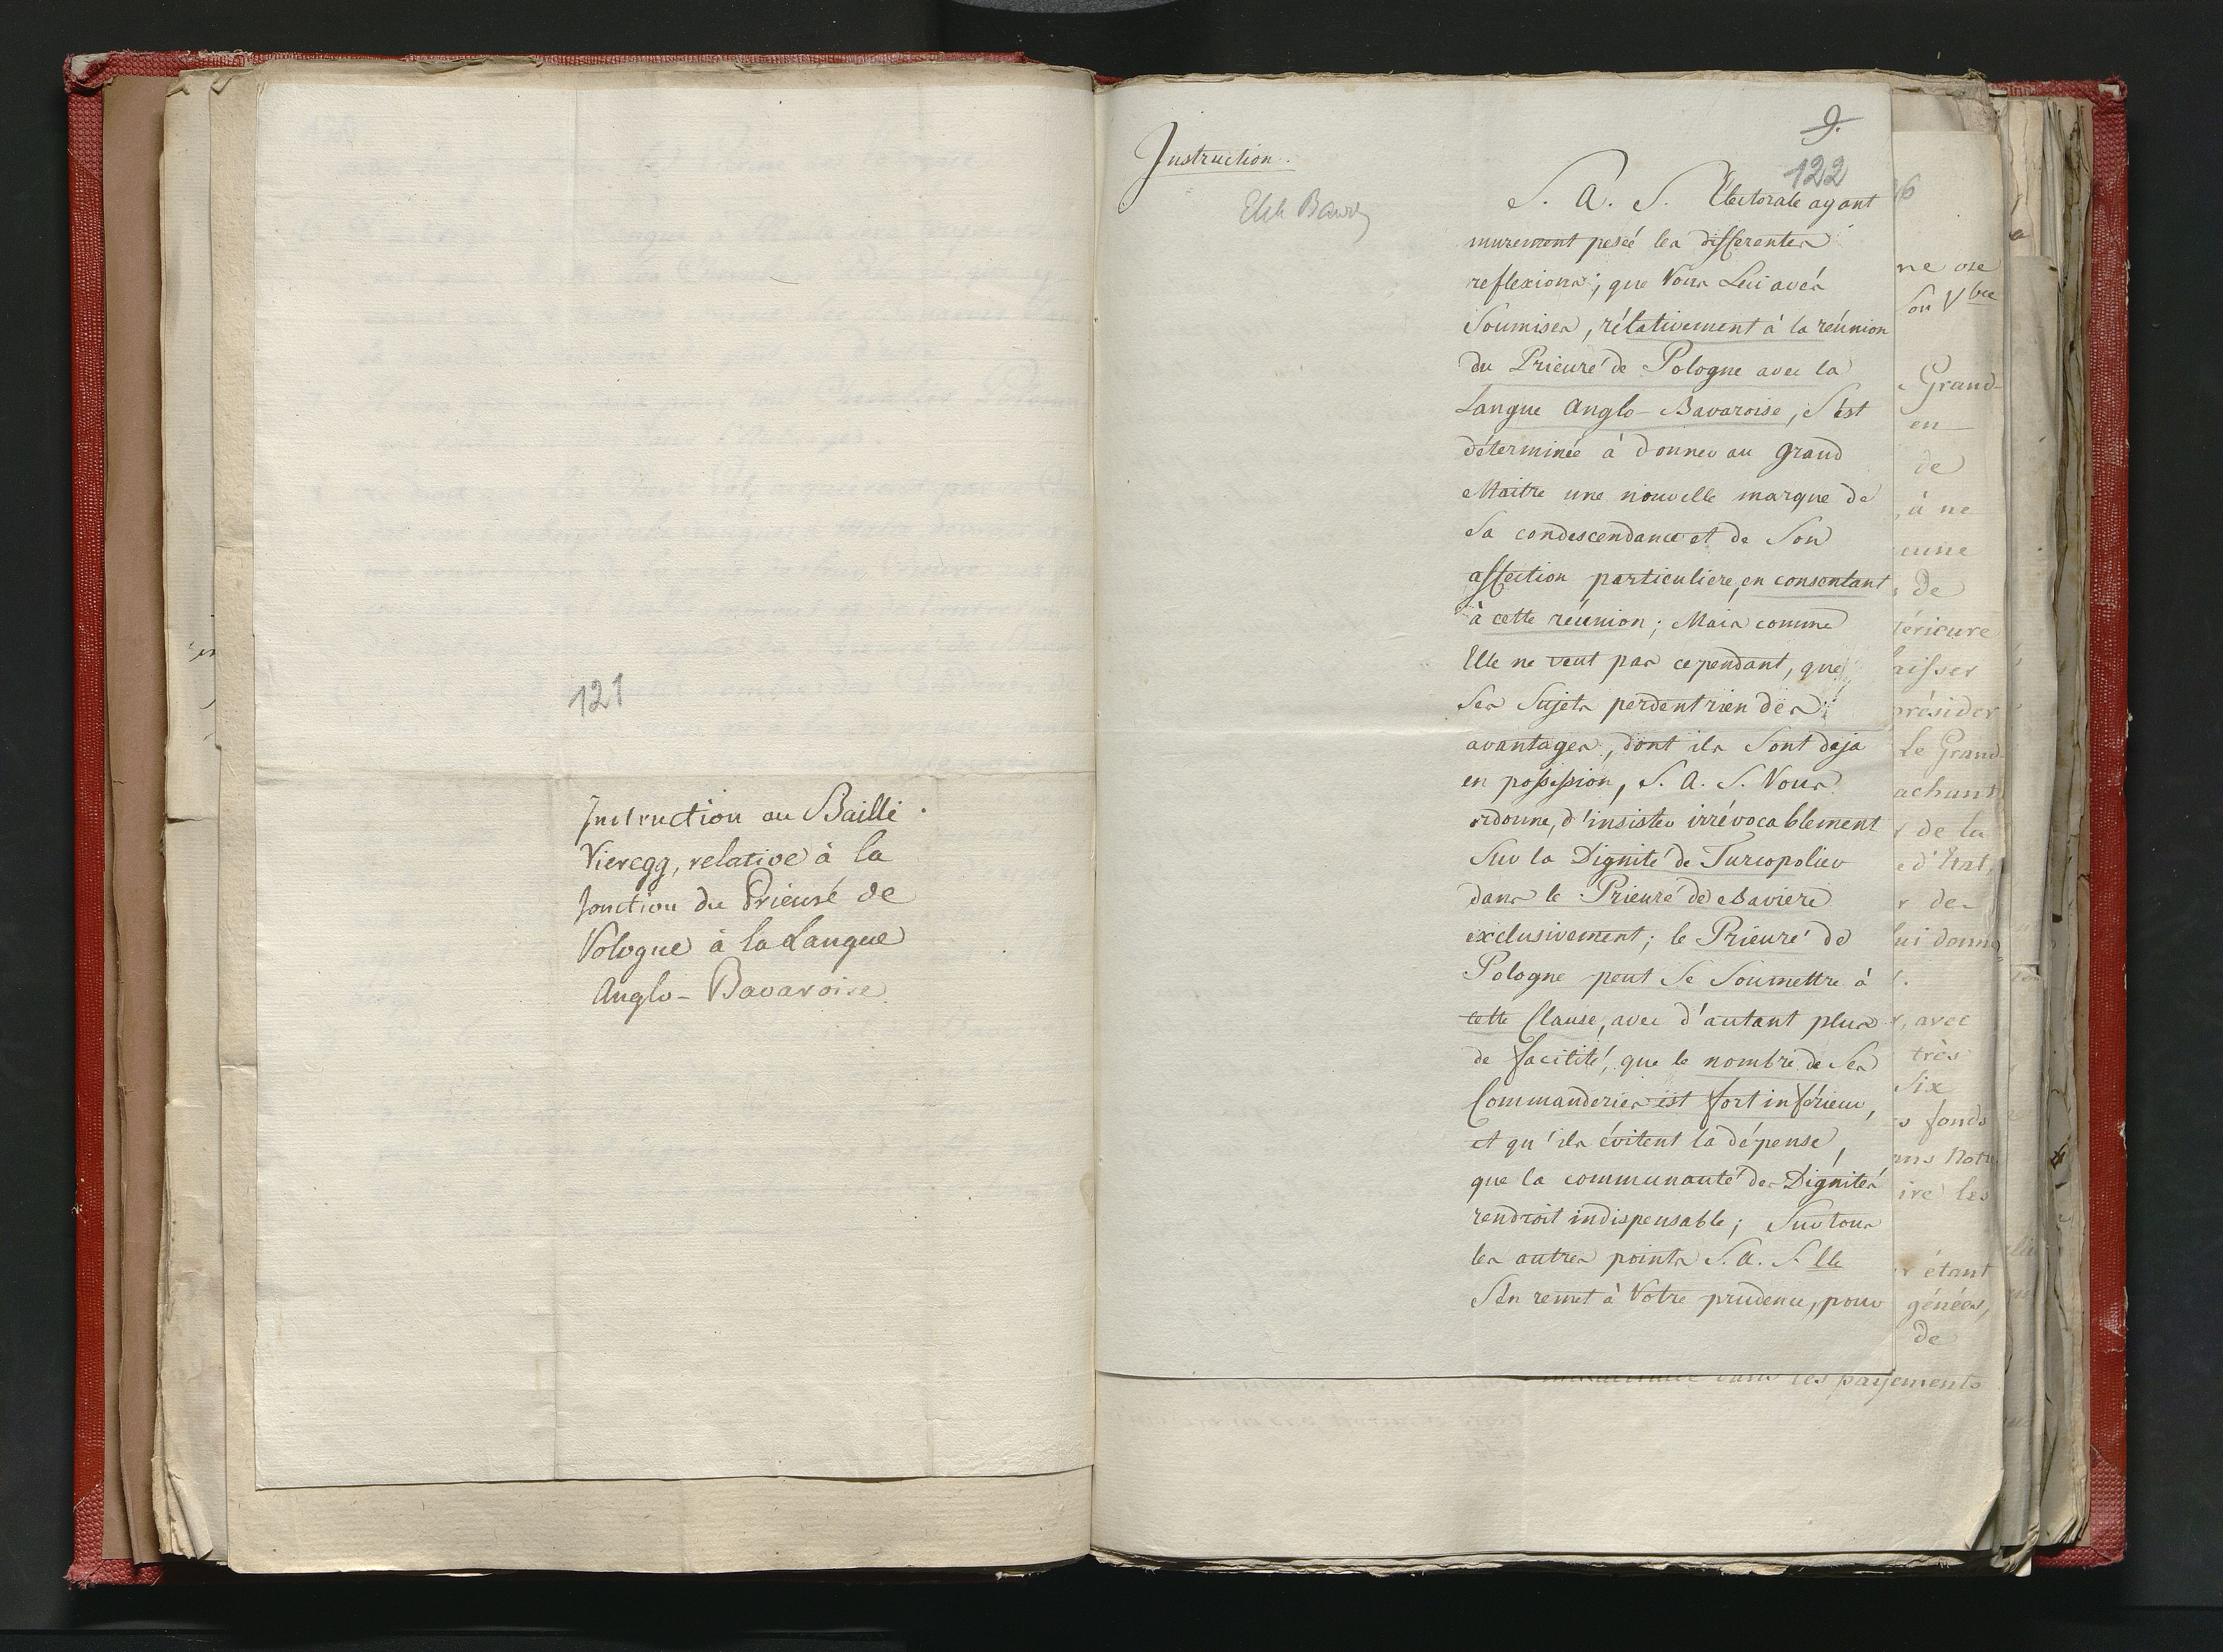 121
Instruction au Bailli
Vieregg, relative à la
Jonction du Prieuré de
Pologne à la Langue
Anglo-Bavaroise
9.
122
Instruction.
S. A. S. Electorale ayant
murement pesée les differentes
reflexions, que Vous Lui avés
Soumises, rélativement à la reúnion
du Prieuré de Pologne avec la
Langue Anglo-Bavaroise, S'est
déterminée à donner au Grand
Maitre une nouvelle marque de
Sa condescendance et de Son
affection particuliere, en consentant
à cette reúnion; Mais comme
Elle ne veut pas cependant, que
Ses Sujets perdent rien des
avantages, dont ils Sont deja
en possession, S. A. S. Vous
ordonne, d'insister irrévocablement
Sur la Dignité de Turcopolier
dans le Prieuré de Baviere
exclusivement; le Prieuré de
Pologne peut Se Soumettre à
cette Clause, avec d'autant plus
de facilité, que le nombre de Ses
Commanderies est fort inférieur,
et qu'ils évitent la dépense,
que la communauté des Dignités
rendroit indispensable; Sur tous
les autres points S. A. S. lle
S'en remet à Votre prudence, pour
ne ose
Grand-
en
de
, à ne
cune
de
érieure
aisser
présider
Le Grand
achant
de la
d'Etat,
de
lui donne
, avec
très
Six
fonds
ire les
étant
génées,
de
dans les payements